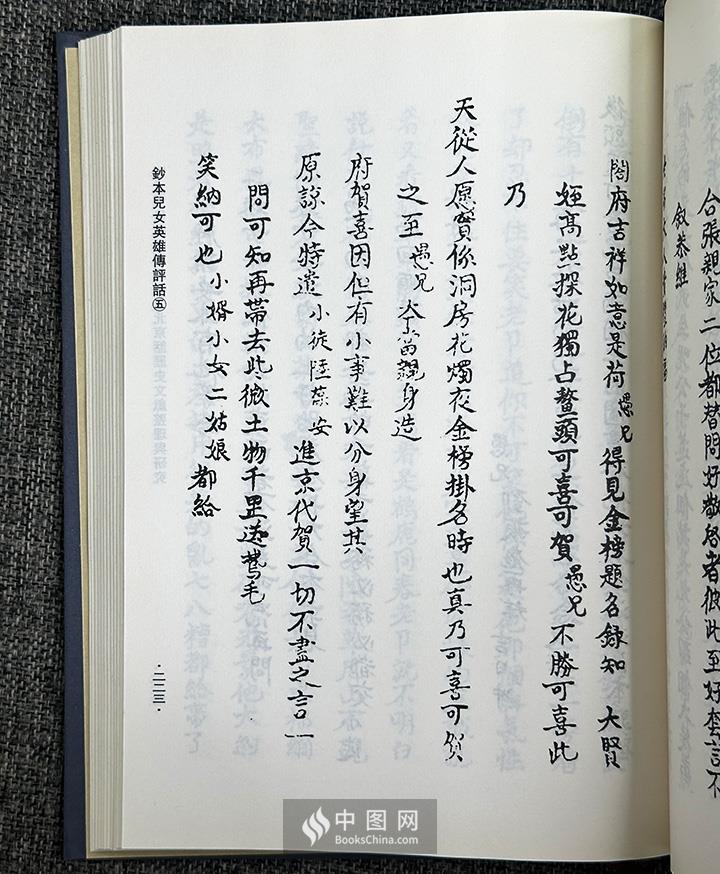 合張親家二位都替問好敬啟者彼此至好套言不
敘恭維
閤府吉祥如意是荷愚兄得見金榜題名錄知 大賢
姪高點探花獨占鰲頭可喜可賀愚兄不勝可喜此
乃
天從人愿實係洞房花燭夜金榜掛名時也真乃可喜可賀
之至愚兄本當親身造
府賀喜因但有小事難以分身望其
原諒今特遣小徒陸葆安進京代賀一切不盡之言一
問可知再帶去些微土物千里送鵞毛
笑納可也小婿小女二姑娘都給
鈔本兒女英雄傳評話 五
·二二三·
中图网
BooksChina.com